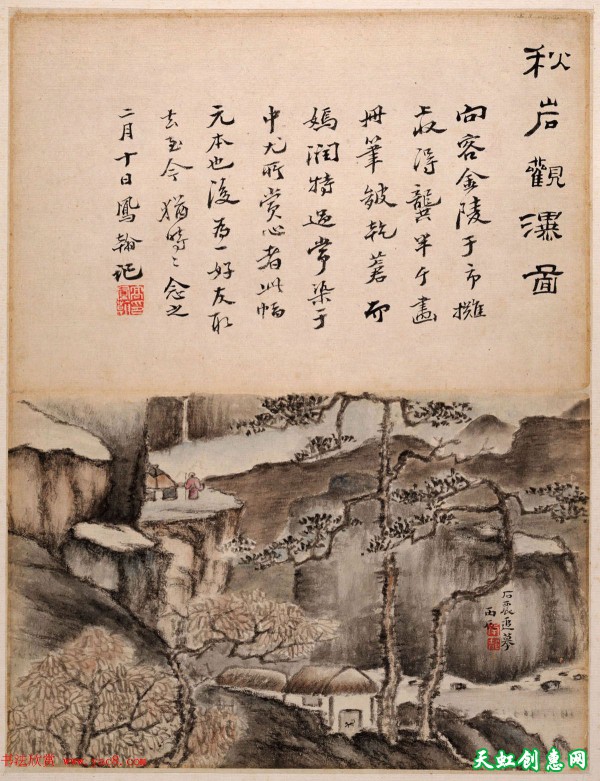 秋岩觀瀑圖
向客金陵于市攤
上收得龔半千畫
冊筆皴乾着而
嫣潤特過常染于
中尤所賞心者此幅
元本也後為一好友取
去至今猶時〻念之
二月十日鳳翰記
石農追摹
书法欣赏 www.yac8.com
天虹创惠网